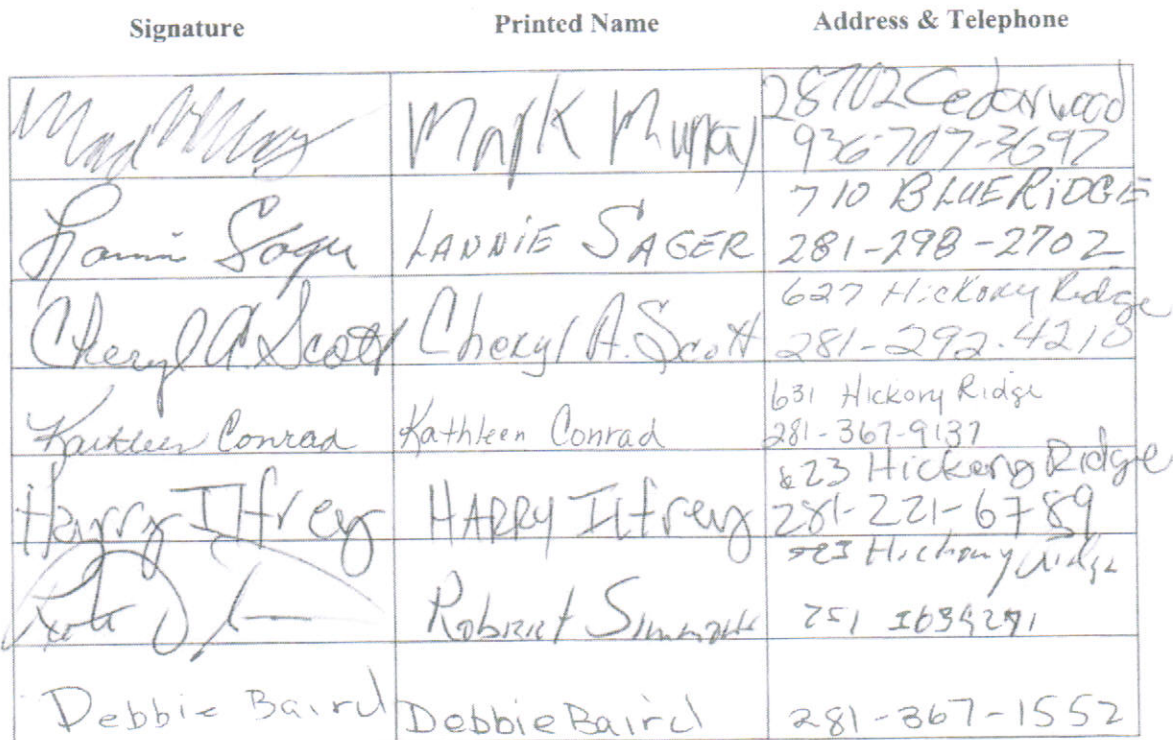 Signature Printed Name Address & Telephone
Mark Murray 28702 Cedarwood
936-707-3697
Lannie Sager LANNIE SAGER 710 BLUE RIDGE
281-298-2702
Cheryl A. Scott Cheryl A. Scott 627 Hickory Ridge
281-292-4210
Kathleen Conrad Kathleen Conrad 631 Hickory Ridge
281-367-9137
Harry Ilfrey HARRY Ilfrey 623 Hickory Ridge
281-221-6789
Robert Simmons Hickory Ridge
Debbie Baird Debbie Baird 281-367-1552